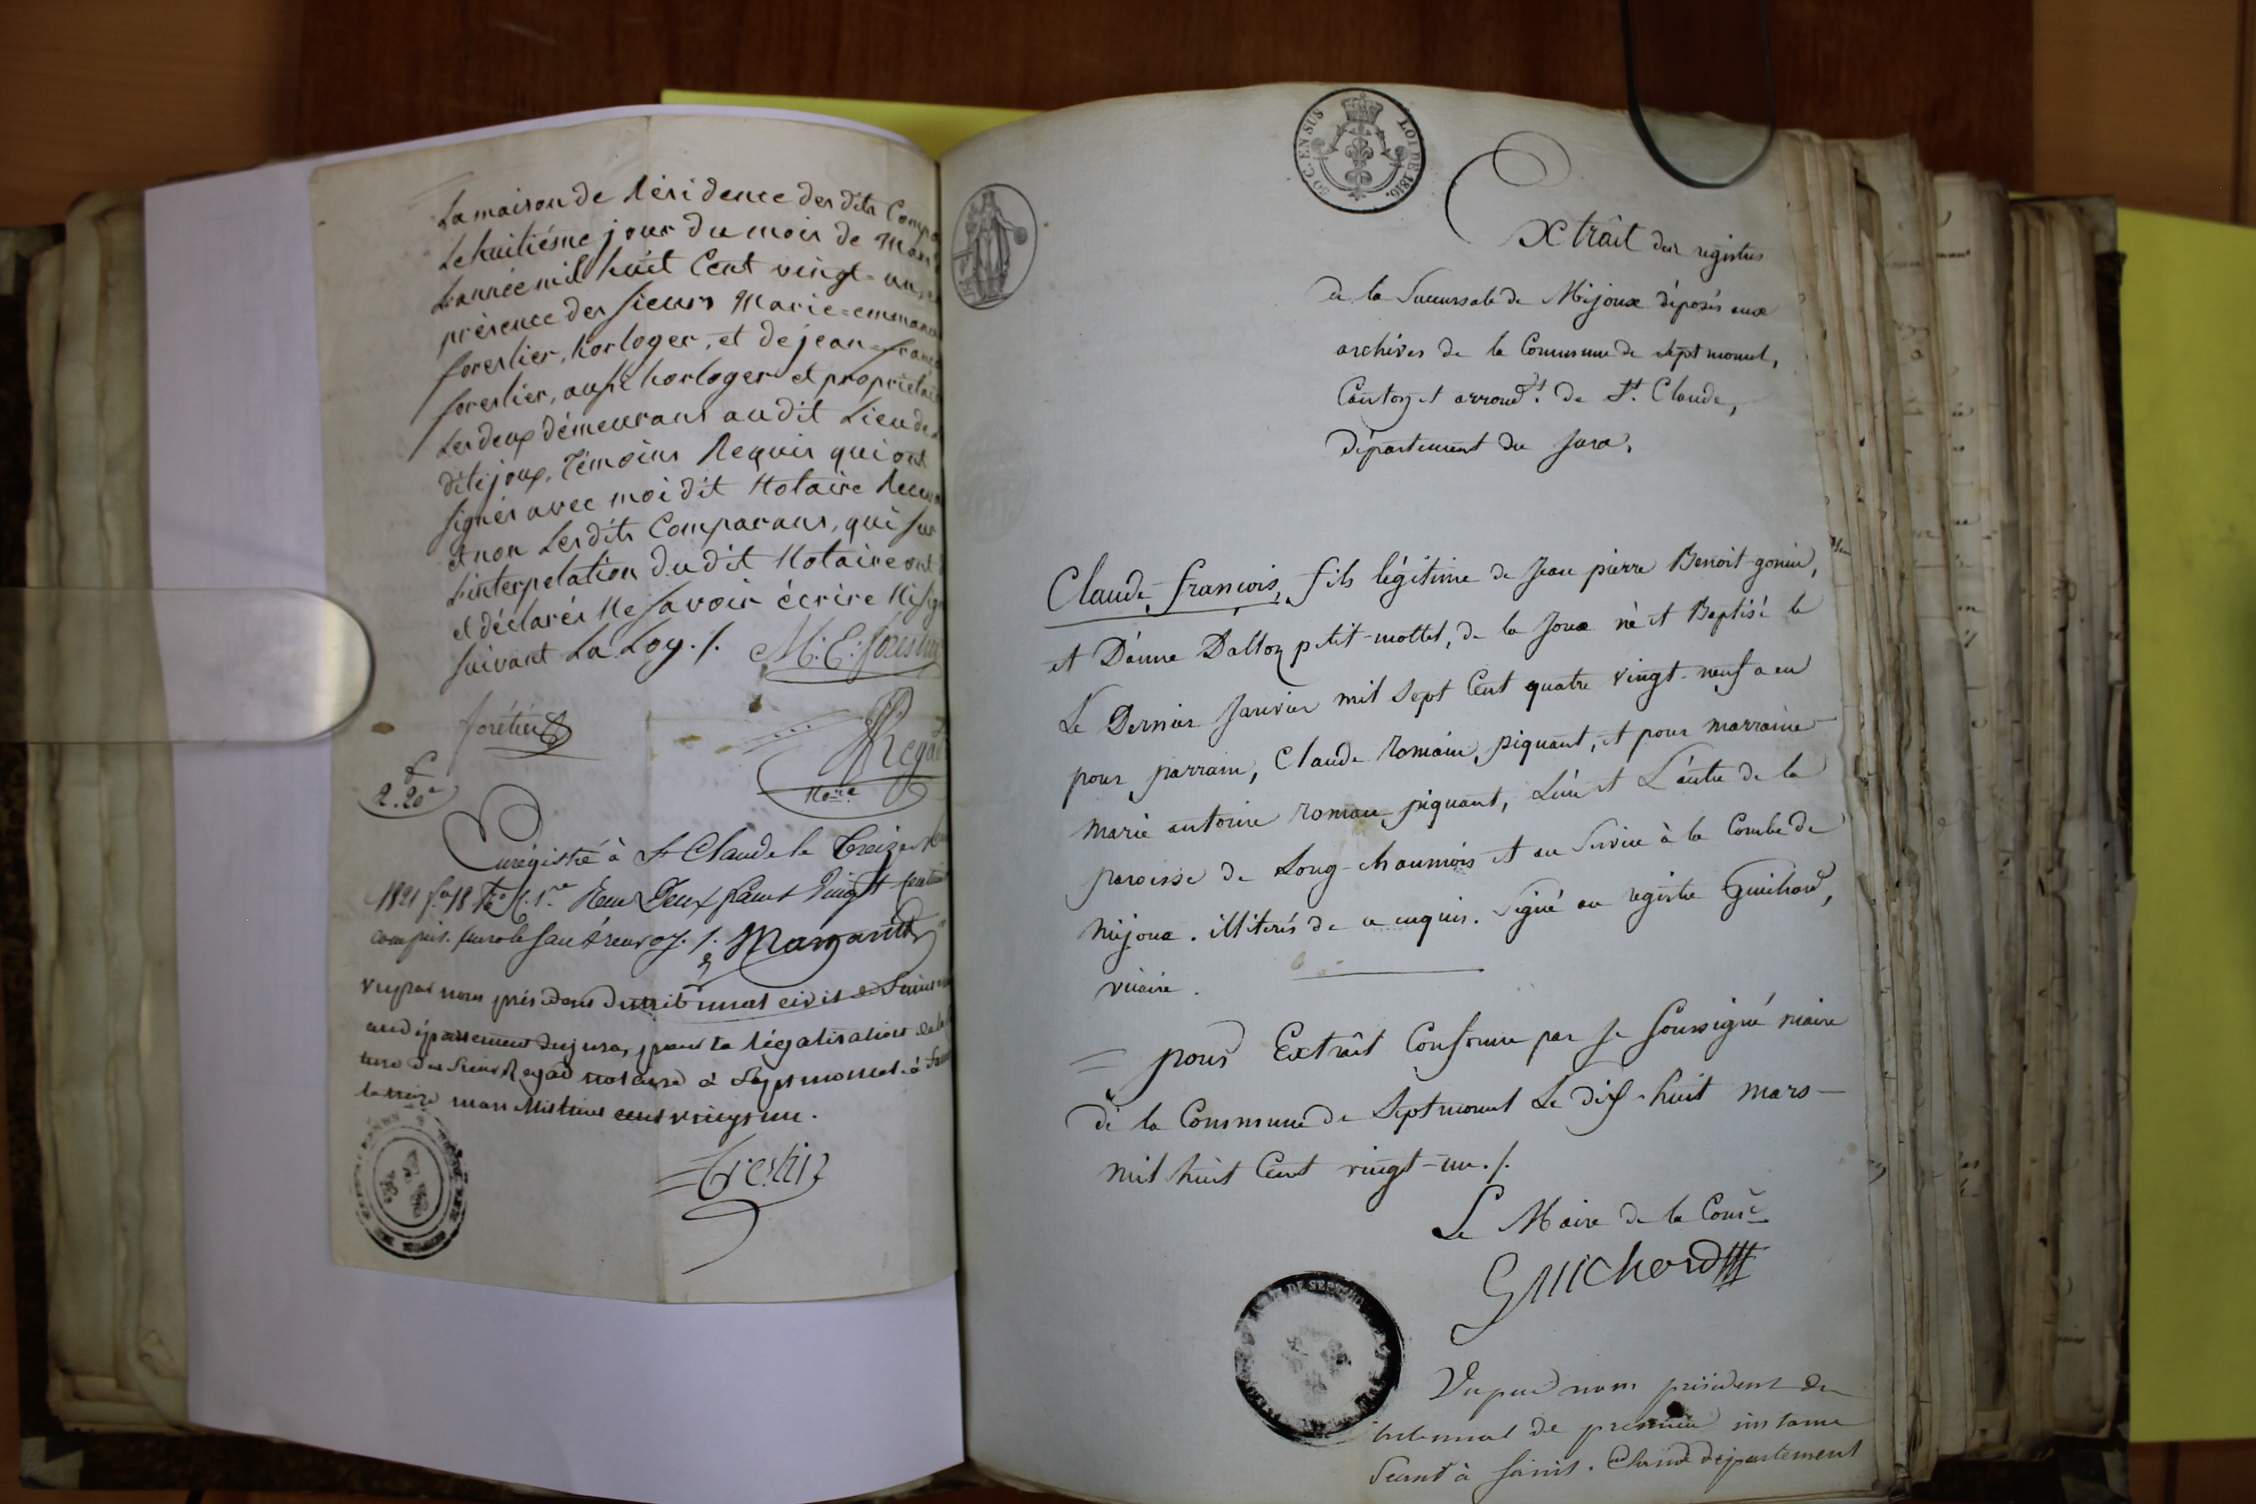 La maison de Résidence des dits
Le huitiéme jour du mois de Mars
L'année mil huit Cent vingt-un,
présence des sieurs Marie=emman
forestier, horloger, et de jean=
forestier, aussi horloger et propriétai
Les deux démeurans audit Lieu de
dite joux, Témoins Requis qui ont
signés avec moi dit Notaire
et non Les dits Comparans, qui sur
L'interpelation du dit Notaire ont
et déclarés Ne savoir écrire Ni sig
suivant La Loy./.
M. E. forestier
forétier
Regad
Nore
2.20
Enregistré à St Claude le treize
1821 fo 18 Deux francs Vingt
compris.
Vu par nous président du tribunal civil
au département du jura, pour la légalisation de la
ture du Sieur Regad notaire à Septmoncel à
le treize mars Mil huit cent vingt un.
50 C. EN SUS
LOI DE 1816.
Extrait des registres
de la Succursale de Mijoux déposés aux
archives de la Commune de Septmoncel,
Canton et arrondt. de St. Claude,
département du Jura.
Claude, françois, fils légitime de Jean pierre Benoit-gonin,
et D'anne Dalloz petit-mottet, de la Joux né et Baptisé le
Le Dernier Janvier mil Sept Cent quatre vingt-neuf a eu
pour parrain, Claude Romain, piquant, et pour marraine
Marie antoine Romain piquant, L'un et L'autre de la
paroisse de Long-chaumois et au Service à la Combe de
mijoux. illiterés de ce enquis. Signé au registre Guichard,
vicaire.
= pour Extrait Conforme par Je Soussigné maire
de la Commune de Septmoncel Le dix-huit mars
mil huit Cent vingt-un./.
Le Maire de la Come
Guichard
Vu par nous président du
tribunal de première instance
Seant à Saint-Claude département